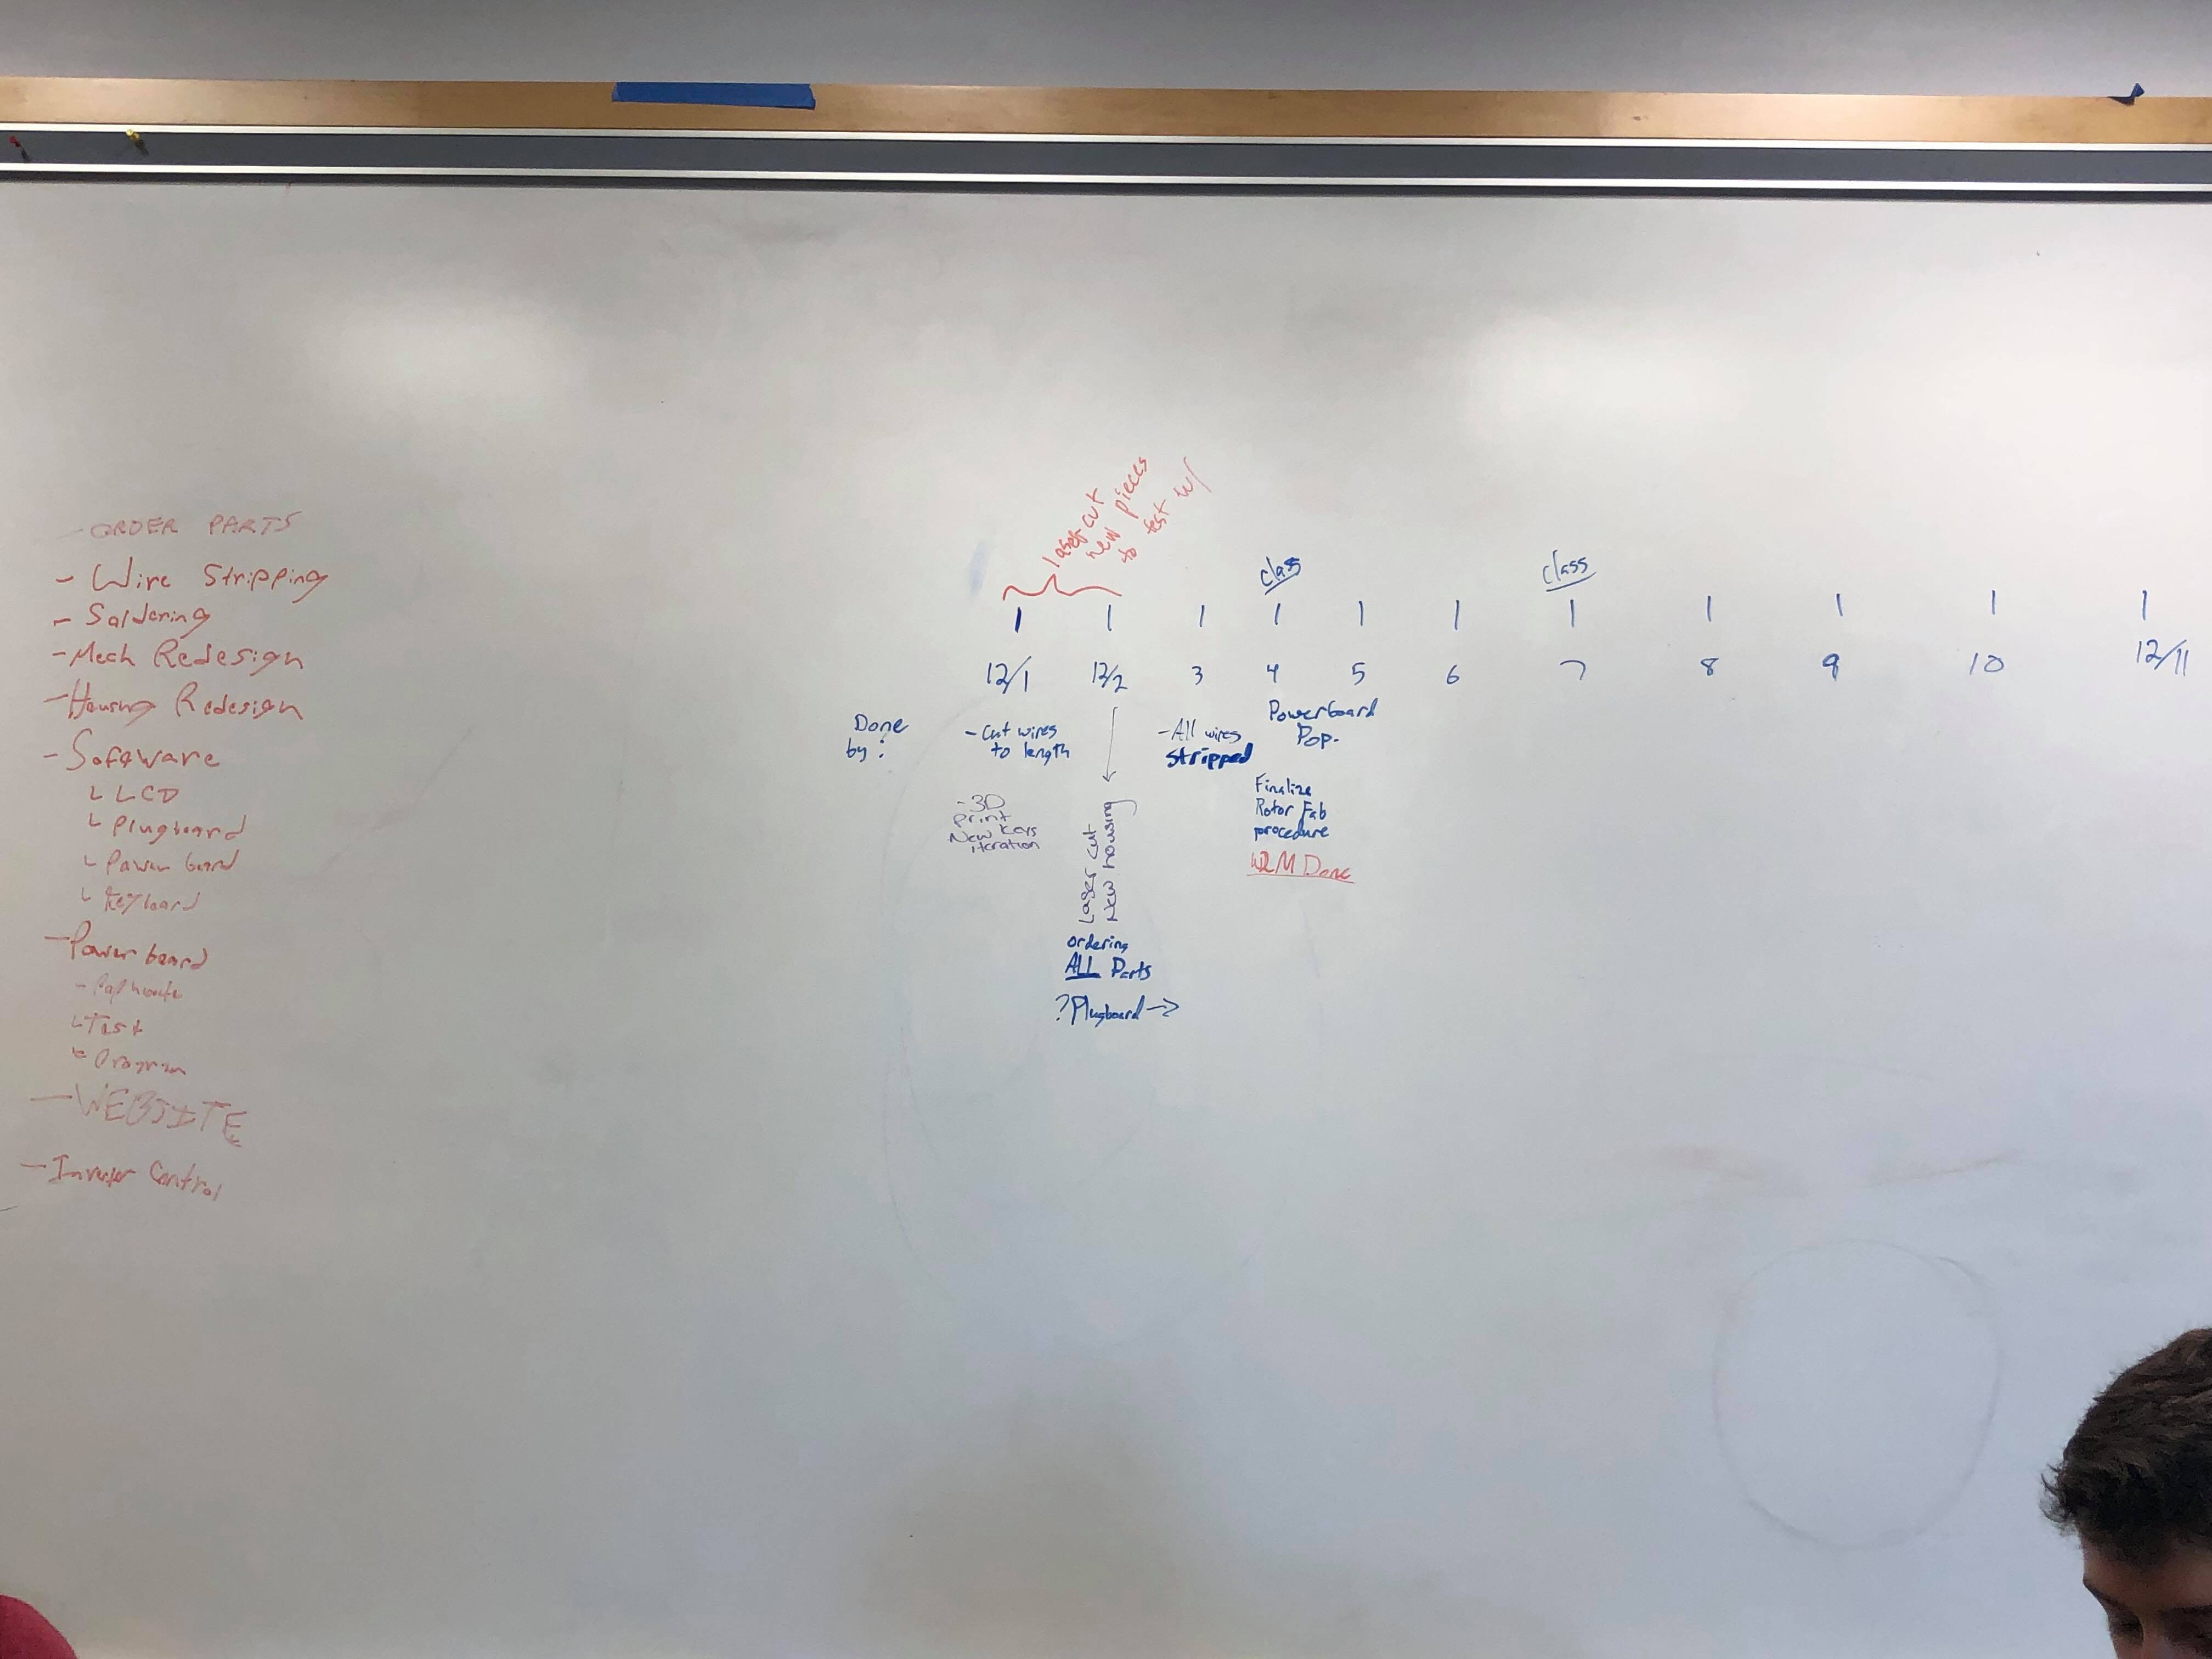 - ORDER PARTS
- Wire Stripping
- Soldering
- Mech Redesign
- Housing Redesign
- Software
LCD
Plugboard
Power board
Keyboard
- Power board
Test
Program
- WEBSITE
Control
laser cut
new pieces
to test w/
class
class
12/1 12/2 3 4 5 6 7 8 9 10 12/11
Done
by:
- Cut wires
to length
- 3D
print
New Keys
iteration
Laser cut
New housing
ordering
ALL Parts
? Plugboard →
- All wires
stripped
Powerboard
Pop.
Finalize
Rotor Fab
procedure
Done